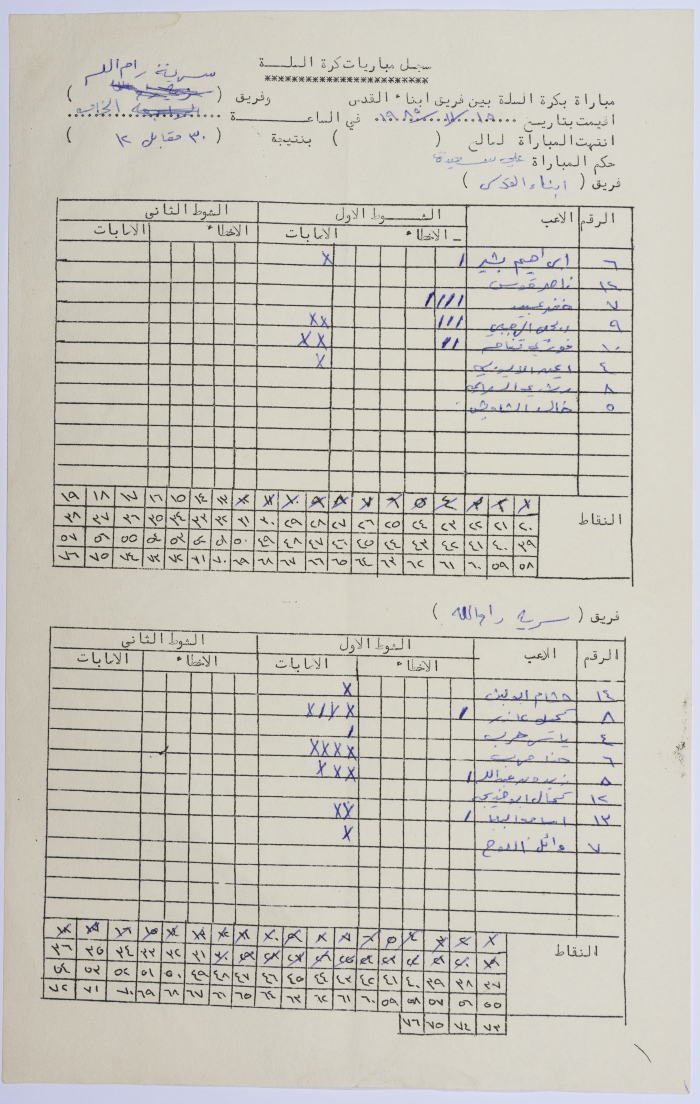 سجل مباريات كرة السلة
*****************************
سرية رام الله
مباراة بكرة السلة بين فريق ابناء القدس وفريق ( )
اقيمت بتاريخ ١٩٨٥ في الساعة
انتهت المباراة لصالح ( ) بنتيجة ( ٣٠ مقابل ١٢ )
حكم المباراة علي
فريق ( ابناء القدس )
الرقم اللاعب الشوط الاول الشوط الثاني
الاخطاء الاصابات الاخطاء الاصابات
٦ ابراهيم بشير / X
١٢
٧ ////
٩ /// XX
١٠ فوزي // XX
٤ X
٨
٥ خالد
النقاط ١ ٢ ٣ ٤ ٥ ٦ ٧ ٨ ٩ ١٠ ١١ ١٢ ١٣ ١٤ ١٥ ١٦ ١٧ ١٨ ١٩
٢٠ ٢١ ٢٢ ٢٣ ٢٤ ٢٥ ٢٦ ٢٧ ٢٨ ٢٩ ٣٠ ٣١ ٣٢ ٣٣ ٣٤ ٣٥ ٣٦ ٣٧ ٣٨
٣٩ ٤٠ ٤١ ٤٢ ٤٣ ٤٤ ٤٥ ٤٦ ٤٧ ٤٨ ٤٩ ٥٠ ٥١ ٥٢ ٥٣ ٥٤ ٥٥ ٥٦ ٥٧
٥٨ ٥٩ ٦٠ ٦١ ٦٢ ٦٣ ٦٤ ٦٥ ٦٦ ٦٧ ٦٨ ٦٩ ٧٠ ٧١ ٧٢ ٧٣ ٧٤ ٧٥ ٧٦
فريق ( سرية رام الله )
الرقم اللاعب الشوط الاول الشوط الثاني
الاخطاء الاصابات الاخطاء الاصابات
١٤ هشام X
٨ / X/XX
٤ ياسر حرب /
٦ حنا XXXX
٥ / XXX
١٢ كمال
١٣ اسامة البابا / XX
٧ وائل X
النقاط ١ ٢ ٣ ٤ ٥ ٦ ٧ ٨ ٩ ١٠ ١١ ١٢ ١٣ ١٤ ١٥ ١٦ ١٧ ١٨
١٩ ٢٠ ٢١ ٢٢ ٢٣ ٢٤ ٢٥ ٢٦ ٢٧ ٢٨ ٢٩ ٣٠ ٣١ ٣٢ ٣٣ ٣٤ ٣٥ ٣٦
٣٧ ٣٨ ٣٩ ٤٠ ٤١ ٤٢ ٤٣ ٤٤ ٤٥ ٤٦ ٤٧ ٤٨ ٤٩ ٥٠ ٥١ ٥٢ ٥٣ ٥٤
٥٥ ٥٦ ٥٧ ٥٨ ٥٩ ٦٠ ٦١ ٦٢ ٦٣ ٦٤ ٦٥ ٦٦ ٦٧ ٦٨ ٦٩ ٧٠ ٧١ ٧٢
٧٣ ٧٤ ٧٥ ٧٦